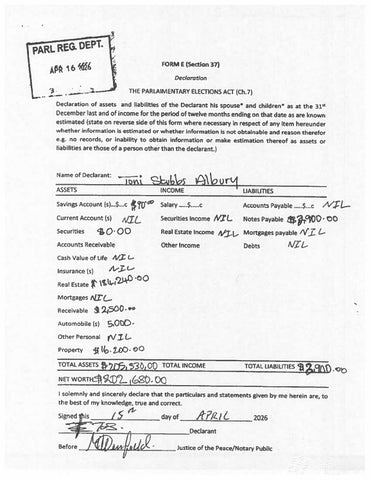 PARL REG. DEPT.
APR 16 2026
FORM E (Section 37)
Declaration
THE PARLAIMENTARY ELECTIONS ACT (Ch.7)
Declaration of assets and liabilities of the Declarant his spouse* and children* as at the 31st
December last and of income for the period of twelve months ending on that date as are known
estimated (state on reverse side of this form where necessary in respect of any item hereunder
whether information is estimated or whether information is not obtainable and reason therefor
e.g. no records, or inability to obtain information or make estimation thereof as assets or
liabilities are those of a person other than the declarant.)
Name of Declarant: Toni Stubbs Albury
ASSETS INCOME LIABILITIES
Savings Account (s)....$...c Salary .....$.....c Accounts Payable ....$...c NIL
Current Account (s) NIL Securities Income NIL Notes Payable $3,900.00
Securities $0.00 Real Estate Income NIL Mortgages payable NIL
Accounts Receivable Other Income Debts NIL
Cash Value of Life NIL
Insurance (s) NIL
Real Estate
Mortgages NIL
Receivable $2,500.00
Automobile (s) 5,000.
Other Personal NIL
Property $16.200.00
TOTAL ASSETS TOTAL INCOME TOTAL LIABILITIES $3,900.00
NET WORTH
I solemnly and sincerely declare that the particulars and statements given by me herein are, to
the best of my knowledge, true and correct.
Signed this 15th day of APRIL 2026
Declarant
Before Justice of the Peace/Notary Public